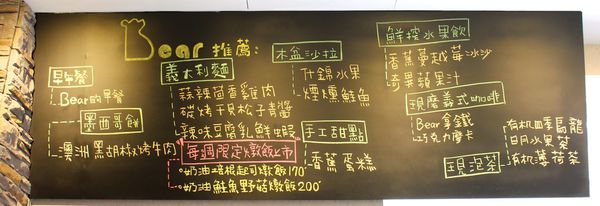 Bear 推薦:
早午餐
Bear的早餐
墨西哥餅
澳洲黑胡椒烤牛肉
義大利麵
蒜辣茴香雞肉
碳烤干貝松子青醬
辣味豆腐乳鮮蝦
每週限定燉飯上市
奶油培根起司燉飯170
奶油鮭魚野菇燉飯200
木盆沙拉
什錦水果
煙燻鮭魚
手工甜點
香蕉蛋糕
鮮搾水果飲
香蕉蔓越莓冰沙
奇異蘋果汁
現磨義式咖啡
Bear拿鐵
巧克力摩卡
現泡茶
有机四季烏龍
日月水果茶
有机薄荷茶